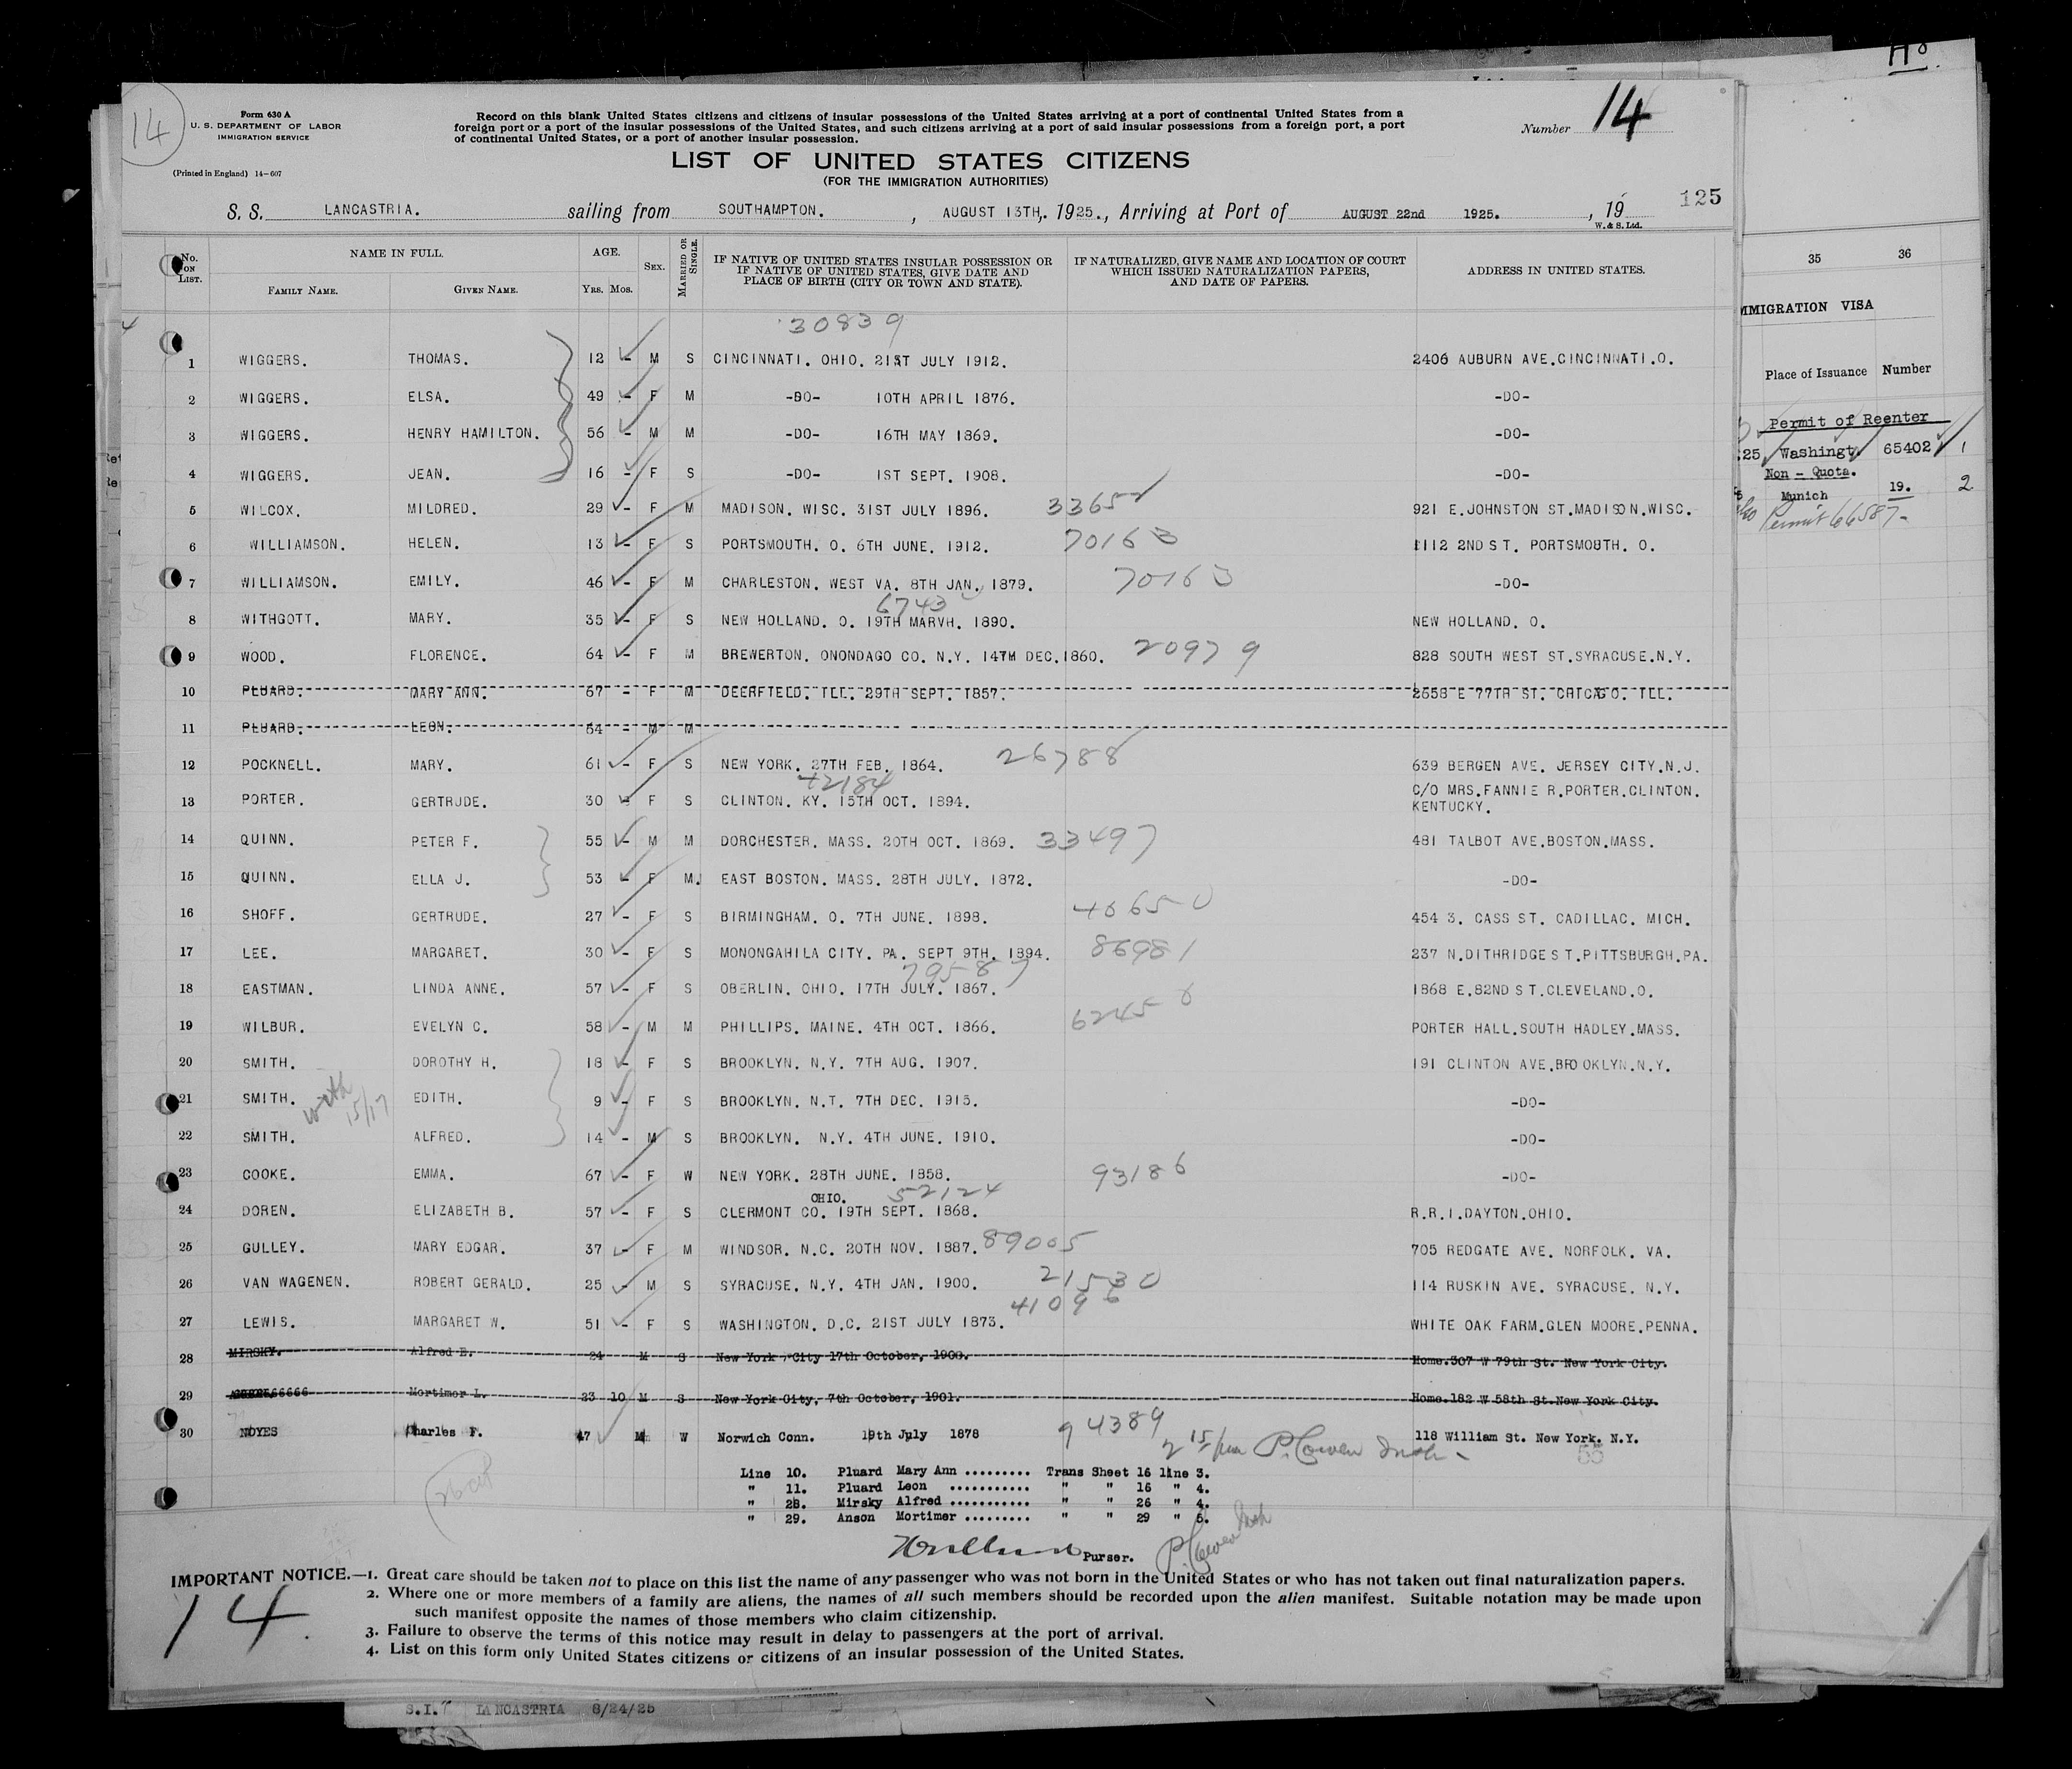 14
Form 630 A
U. S. DEPARTMENT OF LABOR
IMMIGRATION SERVICE
(Printed in England) 14-607
Record on this blank United States citizens and citizens of insular possessions of the United States arriving at a port of continental United States from a
foreign port or a port of the insular possessions of the United States, and such citizens arriving at a port of said insular possessions from a foreign port, a port
of continental United States, or a port of another insular possession.
Number 14
LIST OF UNITED STATES CITIZENS
(FOR THE IMMIGRATION AUTHORITIES)
125
S. S. LANCASTRIA. sailing from SOUTHAMPTON. , AUGUST 13TH,. 1925., Arriving at Port of AUGUST 22nd 1925. , 19
W. & S. Ltd.
No. ON LIST. NAME IN FULL. FAMILY NAME. GIVEN NAME. AGE. YRS. MOS. SEX. MARRIED OR SINGLE. IF NATIVE OF UNITED STATES INSULAR POSSESSION OR IF NATIVE OF UNITED STATES, GIVE DATE AND PLACE OF BIRTH (CITY OR TOWN AND STATE). IF NATURALIZED, GIVE NAME AND LOCATION OF COURT WHICH ISSUED NATURALIZATION PAPERS, AND DATE OF PAPERS. ADDRESS IN UNITED STATES.
30839
1 WIGGERS. THOMAS. 12 - M S CINCINNATI. OHIO. 21ST JULY 1912. 2406 AUBURN AVE.CINCINNATI.O.
2 WIGGERS. ELSA. 49 - F M -DO- 10TH APRIL 1876. -DO-
3 WIGGERS. HENRY HAMILTON. 56 - M M -DO- 16TH MAY 1869. -DO-
4 WIGGERS. JEAN. 16 - F S -DO- 1ST SEPT. 1908. -DO-
5 WILCOX. MILDRED. 29 - F M MADISON. WISC. 31ST JULY 1896. 33652 921 E.JOHNSTON ST.MADISON.WISC.
6 WILLIAMSON. HELEN. 13 - F S PORTSMOUTH. O. 6TH JUNE. 1912. 70163 1112 2ND ST. PORTSMOUTH. O.
7 WILLIAMSON. EMILY. 46 - F M CHARLESTON. WEST VA. 8TH JAN. 1879. 70163 -DO-
6743
8 WITHGOTT. MARY. 35 - F S NEW HOLLAND. O. 19TH MARVH. 1890. NEW HOLLAND. O.
9 WOOD. FLORENCE. 64 - F M BREWERTON. ONONDAGO CO. N.Y. 14TH DEC.1860. 20979 828 SOUTH WEST ST.SYRACUSE.N.Y.
10 PLUARD. MARY ANN. 67 - F M DEERFIELD. ILL. 29TH SEPT. 1857. 2658 E 77TH ST. CHICAGO. ILL.
11 PLUARD. LEON. 64 - M M
12 POCKNELL. MARY. 61 - F S NEW YORK. 27TH FEB. 1864. 26788 639 BERGEN AVE. JERSEY CITY.N.J.
42184
13 PORTER. GERTRUDE. 30 - F S CLINTON. KY. 15TH OCT. 1894. C/O MRS.FANNIE R.PORTER.CLINTON.
KENTUCKY.
14 QUINN. PETER F. 55 - M M DORCHESTER. MASS. 20TH OCT. 1869. 33497 481 TALBOT AVE.BOSTON.MASS.
15 QUINN. ELLA J. 53 - F M. EAST BOSTON. MASS. 28TH JULY. 1872. -DO-
16 SHOFF. GERTRUDE. 27 - F S BIRMINGHAM. O. 7TH JUNE. 1898. 46650 454 3. CASS ST. CADILLAC. MICH.
17 LEE. MARGARET. 30 - F S MONONGAHILA CITY. PA. SEPT 9TH. 1894. 86981 237 N.DITHRIDGE ST.PITTSBURGH.PA.
79587
18 EASTMAN. LINDA ANNE. 57 - F S OBERLIN. OHIO. 17TH JULY. 1867. 1868 E.82ND ST.CLEVELAND.O.
19 WILBUR. EVELYN C. 58 - M M PHILLIPS. MAINE. 4TH OCT. 1866. 62456 PORTER HALL.SOUTH HADLEY.MASS.
20 SMITH. DOROTHY H. 18 - F S BROOKLYN. N.Y. 7TH AUG. 1907. 191 CLINTON AVE.BROOKLYN.N.Y.
21 SMITH. with 15/17 EDITH. 9 - F S BROOKLYN. N.T. 7TH DEC. 1915. -DO-
22 SMITH. ALFRED. 14 - M S BROOKLYN. N.Y. 4TH JUNE. 1910. -DO-
23 COOKE. EMMA. 67 - F W NEW YORK. 28TH JUNE. 1858. 93186 -DO-
OHIO. 52124
24 DOREN. ELIZABETH B. 57 - F S CLERMONT CO. 19TH SEPT. 1868. R.R.I.DAYTON.OHIO.
25 GULLEY. MARY EDGAR. 37 - F M WINDSOR. N.C. 20TH NOV. 1887. 89005 705 REDGATE AVE. NORFOLK. VA.
26 VAN WAGENEN. ROBERT GERALD. 25 - M S SYRACUSE. N.Y. 4TH JAN. 1900. 21530 114 RUSKIN AVE. SYRACUSE. N.Y.
41096
27 LEWIS. MARGARET W. 51 - F S WASHINGTON. D.C. 21ST JULY 1873. WHITE OAK FARM.GLEN MOORE.PENNA.
28 MIRSKY. Alfred E. 24 M S New York City 17th October, 1900. Home.307 W 79th St. New York City.
29 Mortimer L. 23 10 M S New York City, 7th October, 1901. Home.182 W 58th St.New York City.
30 NOYES Charles F. 47 M W Norwich Conn. 19th July 1878 94389 118 William St. New York. N.Y.
P. Cowen
55
Line 10. Pluard Mary Ann ......... Trans Sheet 16 line 3.
" 11. Pluard Leon ........... " " 16 " 4.
" 28. Mirsky Alfred ........... " " 26 " 4.
" 29. Anson Mortimer ......... " " 29 " 5.
Purser.
IMPORTANT NOTICE.—1. Great care should be taken not to place on this list the name of any passenger who was not born in the United States or who has not taken out final naturalization papers.
2. Where one or more members of a family are aliens, the names of all such members should be recorded upon the alien manifest. Suitable notation may be made upon
such manifest opposite the names of those members who claim citizenship.
3. Failure to observe the terms of this notice may result in delay to passengers at the port of arrival.
4. List on this form only United States citizens or citizens of an insular possession of the United States.
14
S.I. LANCASTRIA 8/24/25
35 36
MMIGRATION VISA
Place of Issuance Number
Permit of Reenter
25, Washingt. 65402 1
Non - Quota.
Munich 19. 2
Permit 66587-